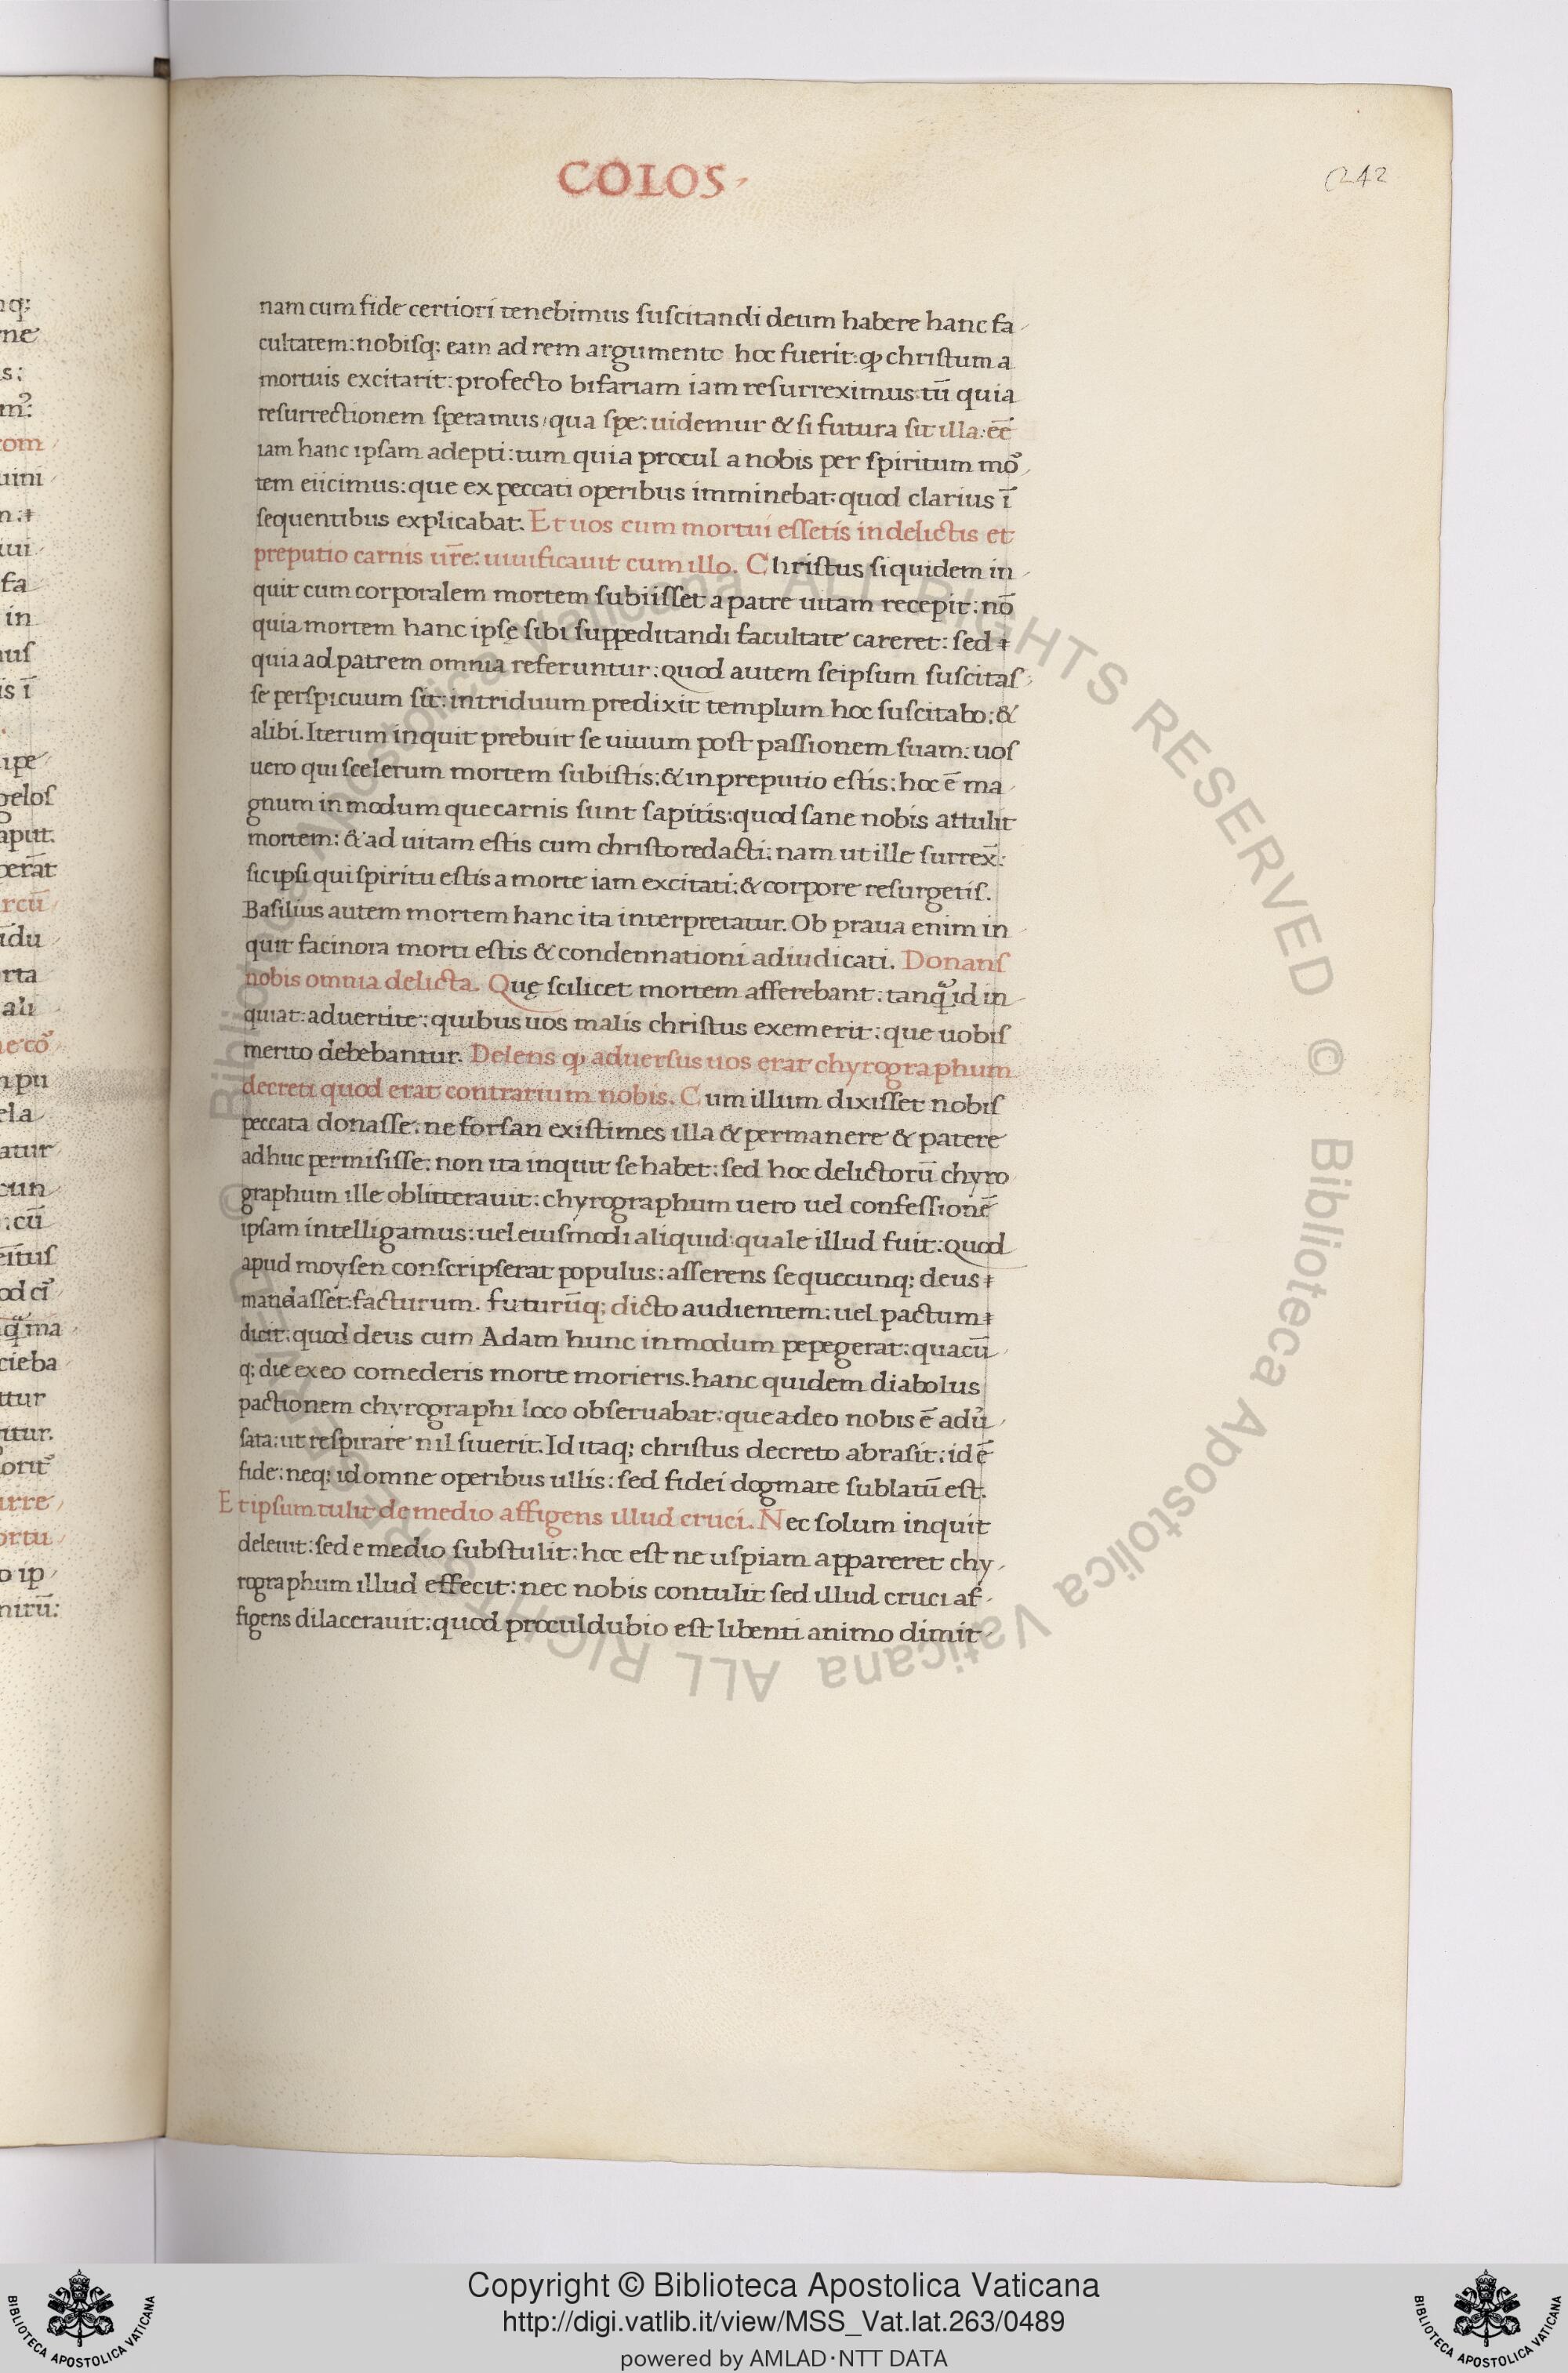 COLOS.
242
nam cum fide certiori tenebimus ſuſcitandi deum habere hanc fa
cultatem: nobiſq; eam ad rem argumento hoc fuerit: ꝙ chriſtum a
mortuis excitarit: profecto bifariam iam reſurreximus tū quia
reſurrectionem ſperamus, qua ſpe: uidemur & ſi futura ſit illa: eē
iam hanc ipſam adepti: tum quia procul a nobis per ſpiritum mor̄
tem eiicimus: que ex peccati operibus imminebat: quod clarius ī
ſequentibus explicabat. Et uos cum mortui eſſetis in delictis et
preputio carnis ur̄e: uiuificauit cum illo. Chriſtus ſiquidem in
quit cum corporalem mortem ſubiiſſet a patre uitam recepit: nō
quia mortem hanc ipſe ſibi ſuppeditandi facultate careret: ſed
quia ad patrem omnia referuntur: quod autem ſeipſum ſuſcitaſ
ſe perſpicuum ſit: in triduum predixit templum hoc ſuſcitabo: &
alibi. Iterum inquit prebuit ſe uiuum poſt paſſionem ſuam: uoſ
uero qui ſcelerum mortem ſubiſtis: & in preputio eſtis: hoc ē ma
gnum in modum que carnis ſunt ſapitis: quod ſane nobis attulit
mortem: & ad uitam eſtis cum chriſto redacti: nam ut ille ſurrex̄:
ſic ipſi qui ſpiritu eſtis a morte iam excitati: & corpore reſurgetiſ.
Baſilius autem mortem hanc ita interpretatur. Ob praua enim in
quit facinora morti eſtis & condennationi adiudicati. Donanſ
nobis omnia delicta. Quę ſcilicet mortem afferebant: tanq̃ id in
quiat: aduertite: quibus uos malis chriſtus exemerit: que uobiſ
merito debebantur. Delens ꝙ aduerſus uos erat chyrographum
decreti quod erat contrarium nobis. Cum illum dixiſſet nobiſ
peccata donaſſe: ne forſan exiſtimes illa & permanere & patere
adhuc permiſiſſe: non ita inquit ſe habet: ſed hoc delictorū chyro
graphum ille oblitterauit: chyrographum uero uel confeſſionē
ipſam intelligamus: uel eiuſmodi aliquid: quale illud fuit: quod
apud moyſen conſcripſerat populus: aſſerens ſe quecunq; deus
mandaſſet: facturum. futurūq; dicto audientem: uel pactum
dicit: quod deus cum Adam hunc in modum pepegerat: quacū
q; die ex eo comederis morte morieris. hanc quidem diabolus
pactionem chyrographi loco obſeruabat: que adeo nobis ē adũ
ſata: ut reſpirare nil ſiuerit. Id itaq; chriſtus decreto abraſit: id ē
fide: neq; id omne operibus ullis: ſed fidei dogmate ſublatū eſt.
Et ipſum tulit de medio affigens illud cruci. Nec ſolum inquit
deleuit: ſed e medio ſubſtulit: hoc eſt ne uſpiam appareret chy
rographum illud effecit: nec nobis contulit ſed illud cruci af
figens dilacerauit: quod proculdubio eſt libenti animo dimit
Copyright © Biblioteca Apostolica Vaticana
http://digi.vatlib.it/view/MSS_Vat.lat.263/0489
powered by AMLAD·NTT DATA